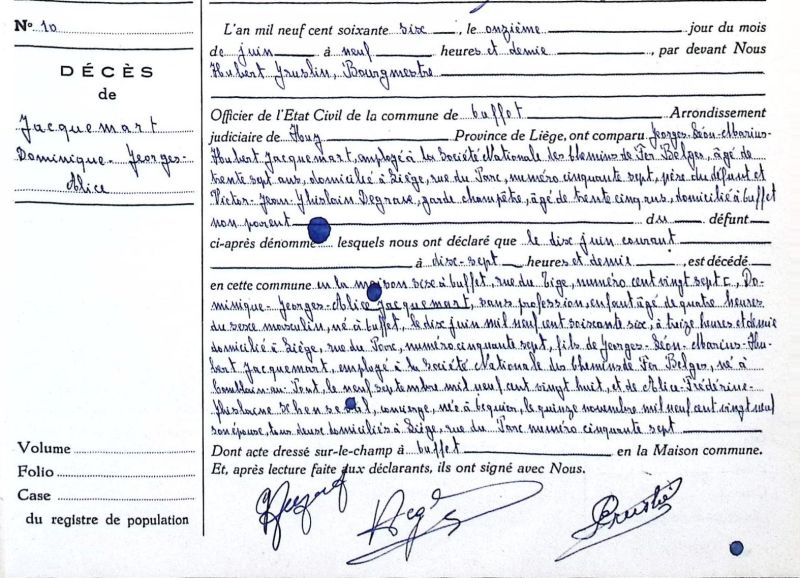 Nº 10
DÉCÈS
de
Jacquemart
Dominique-Georges-
Alice
Volume
Folio
Case
du registre de population
L'an mil neuf cent soixante six, le onzième jour du mois
de juin à neuf heures et demie, par devant Nous
Hubert Bourgmestre
Officier de l'Etat Civil de la commune de Buffet Arrondissement
judiciaire de Huy Province de Liège, ont comparu Georges-Léon-Marius-
Hubert Jacquemart, employé à la Société Nationale des Chemins de Fer Belges, âgé de
trente sept ans, domicilié à Liège, rue du Parc, numéro cinquante sept, père du défunt et
Victor-Jean-Ghislain Degrase, garde champêtre, âgé de trente cinq ans, domicilié à Buffet
non parent du défunt
ci-après dénommé lesquels nous ont déclaré que le dix juin courant
à dix-sept heures et demie, est décédé
en cette commune en la maison sise à Buffet, rue du Tige, numéro cent vingt sept c, Do-
minique-Georges-Alice Jacquemart, sans profession, enfant âgé de quatre heures
du sexe masculin, né à Buffet, le dix juin mil neuf cent soixante six, à treize heures et demie
domicilié à Liège, rue du Parc, numéro cinquante sept, fils de Georges-Léon-Marius-Hu-
bert Jacquemart, employé à la Société Nationale des Chemins de Fer Belges, né à
Comblain-au-Pont, le neuf septembre mil neuf cent vingt huit, et de Alice-Frédérine-
Ghislaine concierge, née à Lequier, le quinze novembre mil neuf cent vingt neuf
son épouse, tous deux domiciliés à Liège, rue du Parc numéro cinquante sept
Dont acte dressé sur-le-champ à Buffet en la Maison commune.
Et, après lecture faite aux déclarants, ils ont signé avec Nous.